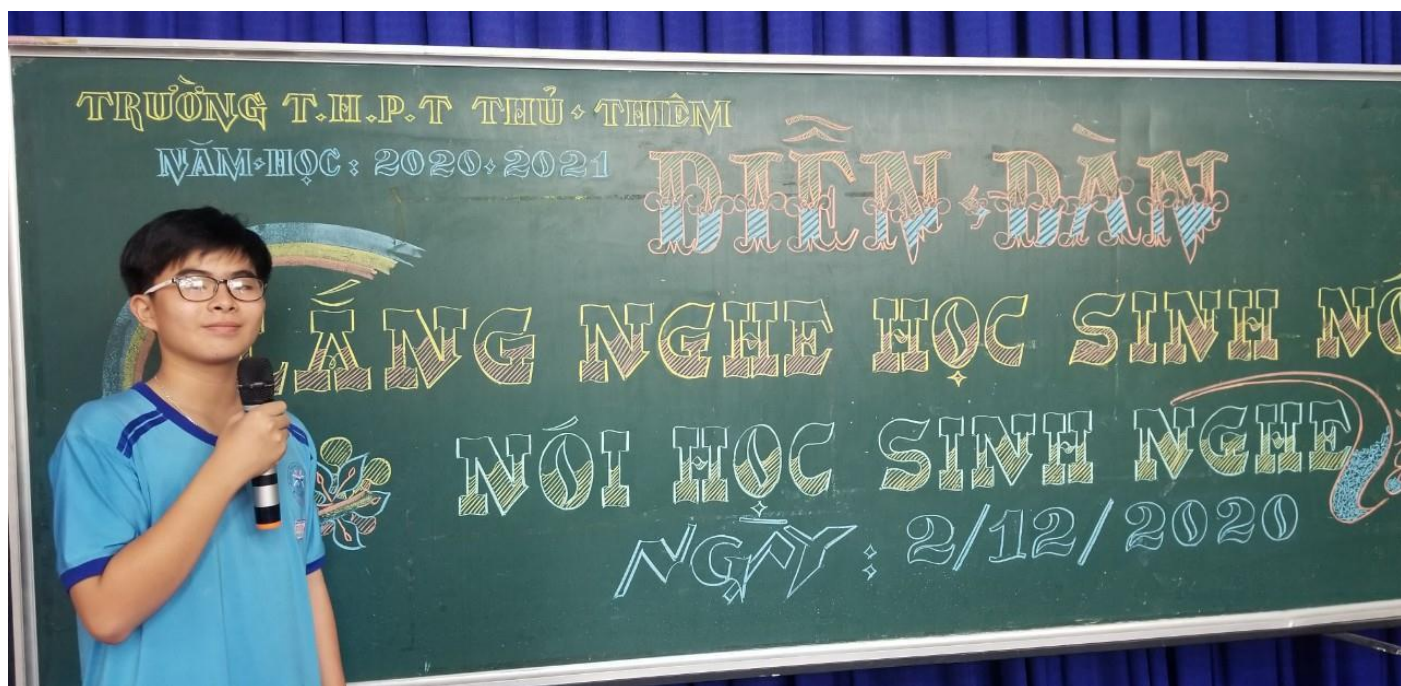 TRƯỜNG T.H.P.T THỦ THIÊM
NĂM HỌC : 2020 2021
DIỄN ĐÀN
LẮNG NGHE HỌC SINH NÓ
NÓI HỌC SINH NGHE
NGÀY : 2/12/2020